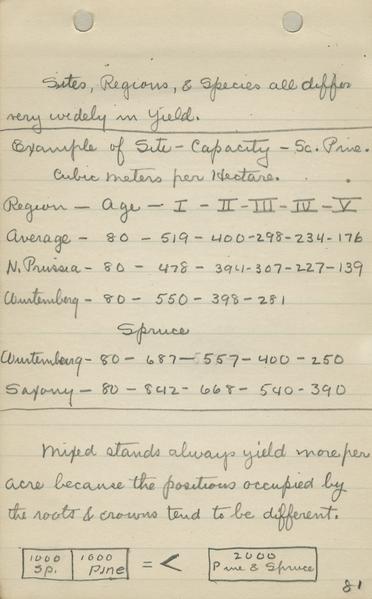 Sites, Regions, & Species all differ
very widely in yield.
Example of Site-Capacity - Sc. Pine.
Cubic meters per Hectare.
Region - Age - I - II - III - IV - V
Average - 80 - 519 - 400 - 298 - 234 - 176
N. Prussia - 80 - 478 - 394 - 307 - 227 - 139
Wurtemberg - 80 - 550 - 398 - 281
Spruce
Wurtemberg - 80 - 687 - 557 - 400 - 250
Saxony - 80 - 842 - 668 - 540 - 390
Mixed stands always yield more per
acre because the positions occupied by
the roots & crowns tend to be different.
1000 Sp. 1000 Pine = < 2000 Pine & Spruce
81